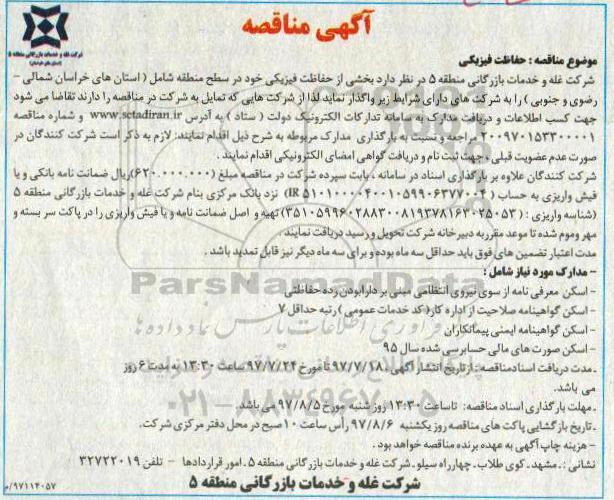 آگهی مناقصه
شرکت غله و خدمات بازرگانی منطقه ۵
(استان های خراسان)
موضوع مناقصه : حفاظت فیزیکی
شرکت غله و خدمات بازرگانی منطقه ۵ در نظر دارد بخشی از حفاظت فیزیکی خود در سطح منطقه شامل ( استان های خراسان شمالی -
رضوی و جنوبی ) را به شرکت های دارای شرایط زیر واگذار نماید لذا از شرکت هایی که تمایل به شرکت در مناقصه را دارند تقاضا می شود
جهت کسب اطلاعات و دریافت مدارک به سامانه تدارکات الکترونیک دولت ( ستاد ) به آدرس www.sctadiran.ir و شماره مناقصه
۲۰۰۹۷۰۱۵۳۳۰۰۰۰۱ مراجعه و نسبت به بارگذاری مدارک مربوطه به شرح ذیل اقدام نمایند: لازم به ذکر است شرکت کنندگان در
صورت عدم عضویت قبلی ، جهت ثبت نام و دریافت گواهی امضای الکترونیکی اقدام نمایند .
شرکت کنندگان علاوه بر بارگذاری اسناد در سامانه ، بابت سپرده شرکت در مناقصه مبلغ (۶۲۰.۰۰۰.۰۰۰)ریال ضمانت نامه بانکی و یا
فیش واریزی به حساب ( IR ۵۱۰۱۰۰۰۰۴۰۰۱۰۵۹۹۰۶۳۷۷۰۰۴) نزد بانک مرکزی بنام شرکت غله و خدمات بازرگانی منطقه ۵
(شناسه واریزی : ۳۵۱۰۵۹۹۶۰۲۸۸۳۰۰۸۱۹۳۷۸۱۶۳۰۲۵۰۵۳) تهیه و اصل ضمانت نامه و یا فیش واریزی را در پاکت سر بسته و
مهر وموم شده تا موعد مقرر به دبیرخانه شرکت تحویل و رسید دریافت نمایند .
مدت اعتبار تضمین های فوق باید حداقل سه ماه بوده و برای سه ماه دیگر نیز قابل تمدید باشد .
- مدارک مورد نیاز شامل :
- اسکن معرفی نامه از سوی نیروی انتظامی مبنی بر دارابودن رده حفاظتی
- اسکن گواهینامه صلاحیت از اداره کار( کد خدمات عمومی ) رتبه حداقل ۷
- اسکن گواهینامه ایمنی پیمانکاران
- اسکن صورت های مالی حسابرسی شده سال ۹۵
ـ مدت دریافت اسنادمناقصه: از تاریخ انتشار آگهی ۹۷/۷/۱۸ تا مورخ ۹۷/۷/۲۴ ساعت ۱۳:۳۰ به مدت ۶ روز
می باشد.
ـ مهلت بارگذاری اسناد مناقصه: تاساعت ۱۳:۳۰ روز شنبه مورخ ۹۷/۸/۵ می باشد.
ـ تاریخ بازگشایی پاکت های مناقصه روز یکشنبه ۹۷/۸/۶ رأس ساعت ۱۰ صبح در محل دفتر مرکزی شرکت.
- هزینه چاپ آگهی به عهده برنده مناقصه خواهد بود .
نشانی : مشهد ـ کوی طلاب ـ چهارراه سیلو ـ شرکت غله و خدمات بازرگانی منطقه ۵ ـ امور قراردادها - تلفن ۳۲۷۲۲۰۱۹
شرکت غله و خدمات بازرگانی منطقه ۵
۹۷۱۱۴۰۵۷/م
ParsNamadData
۰۲۱-۸۸۳۴۹۶۷۰-۵